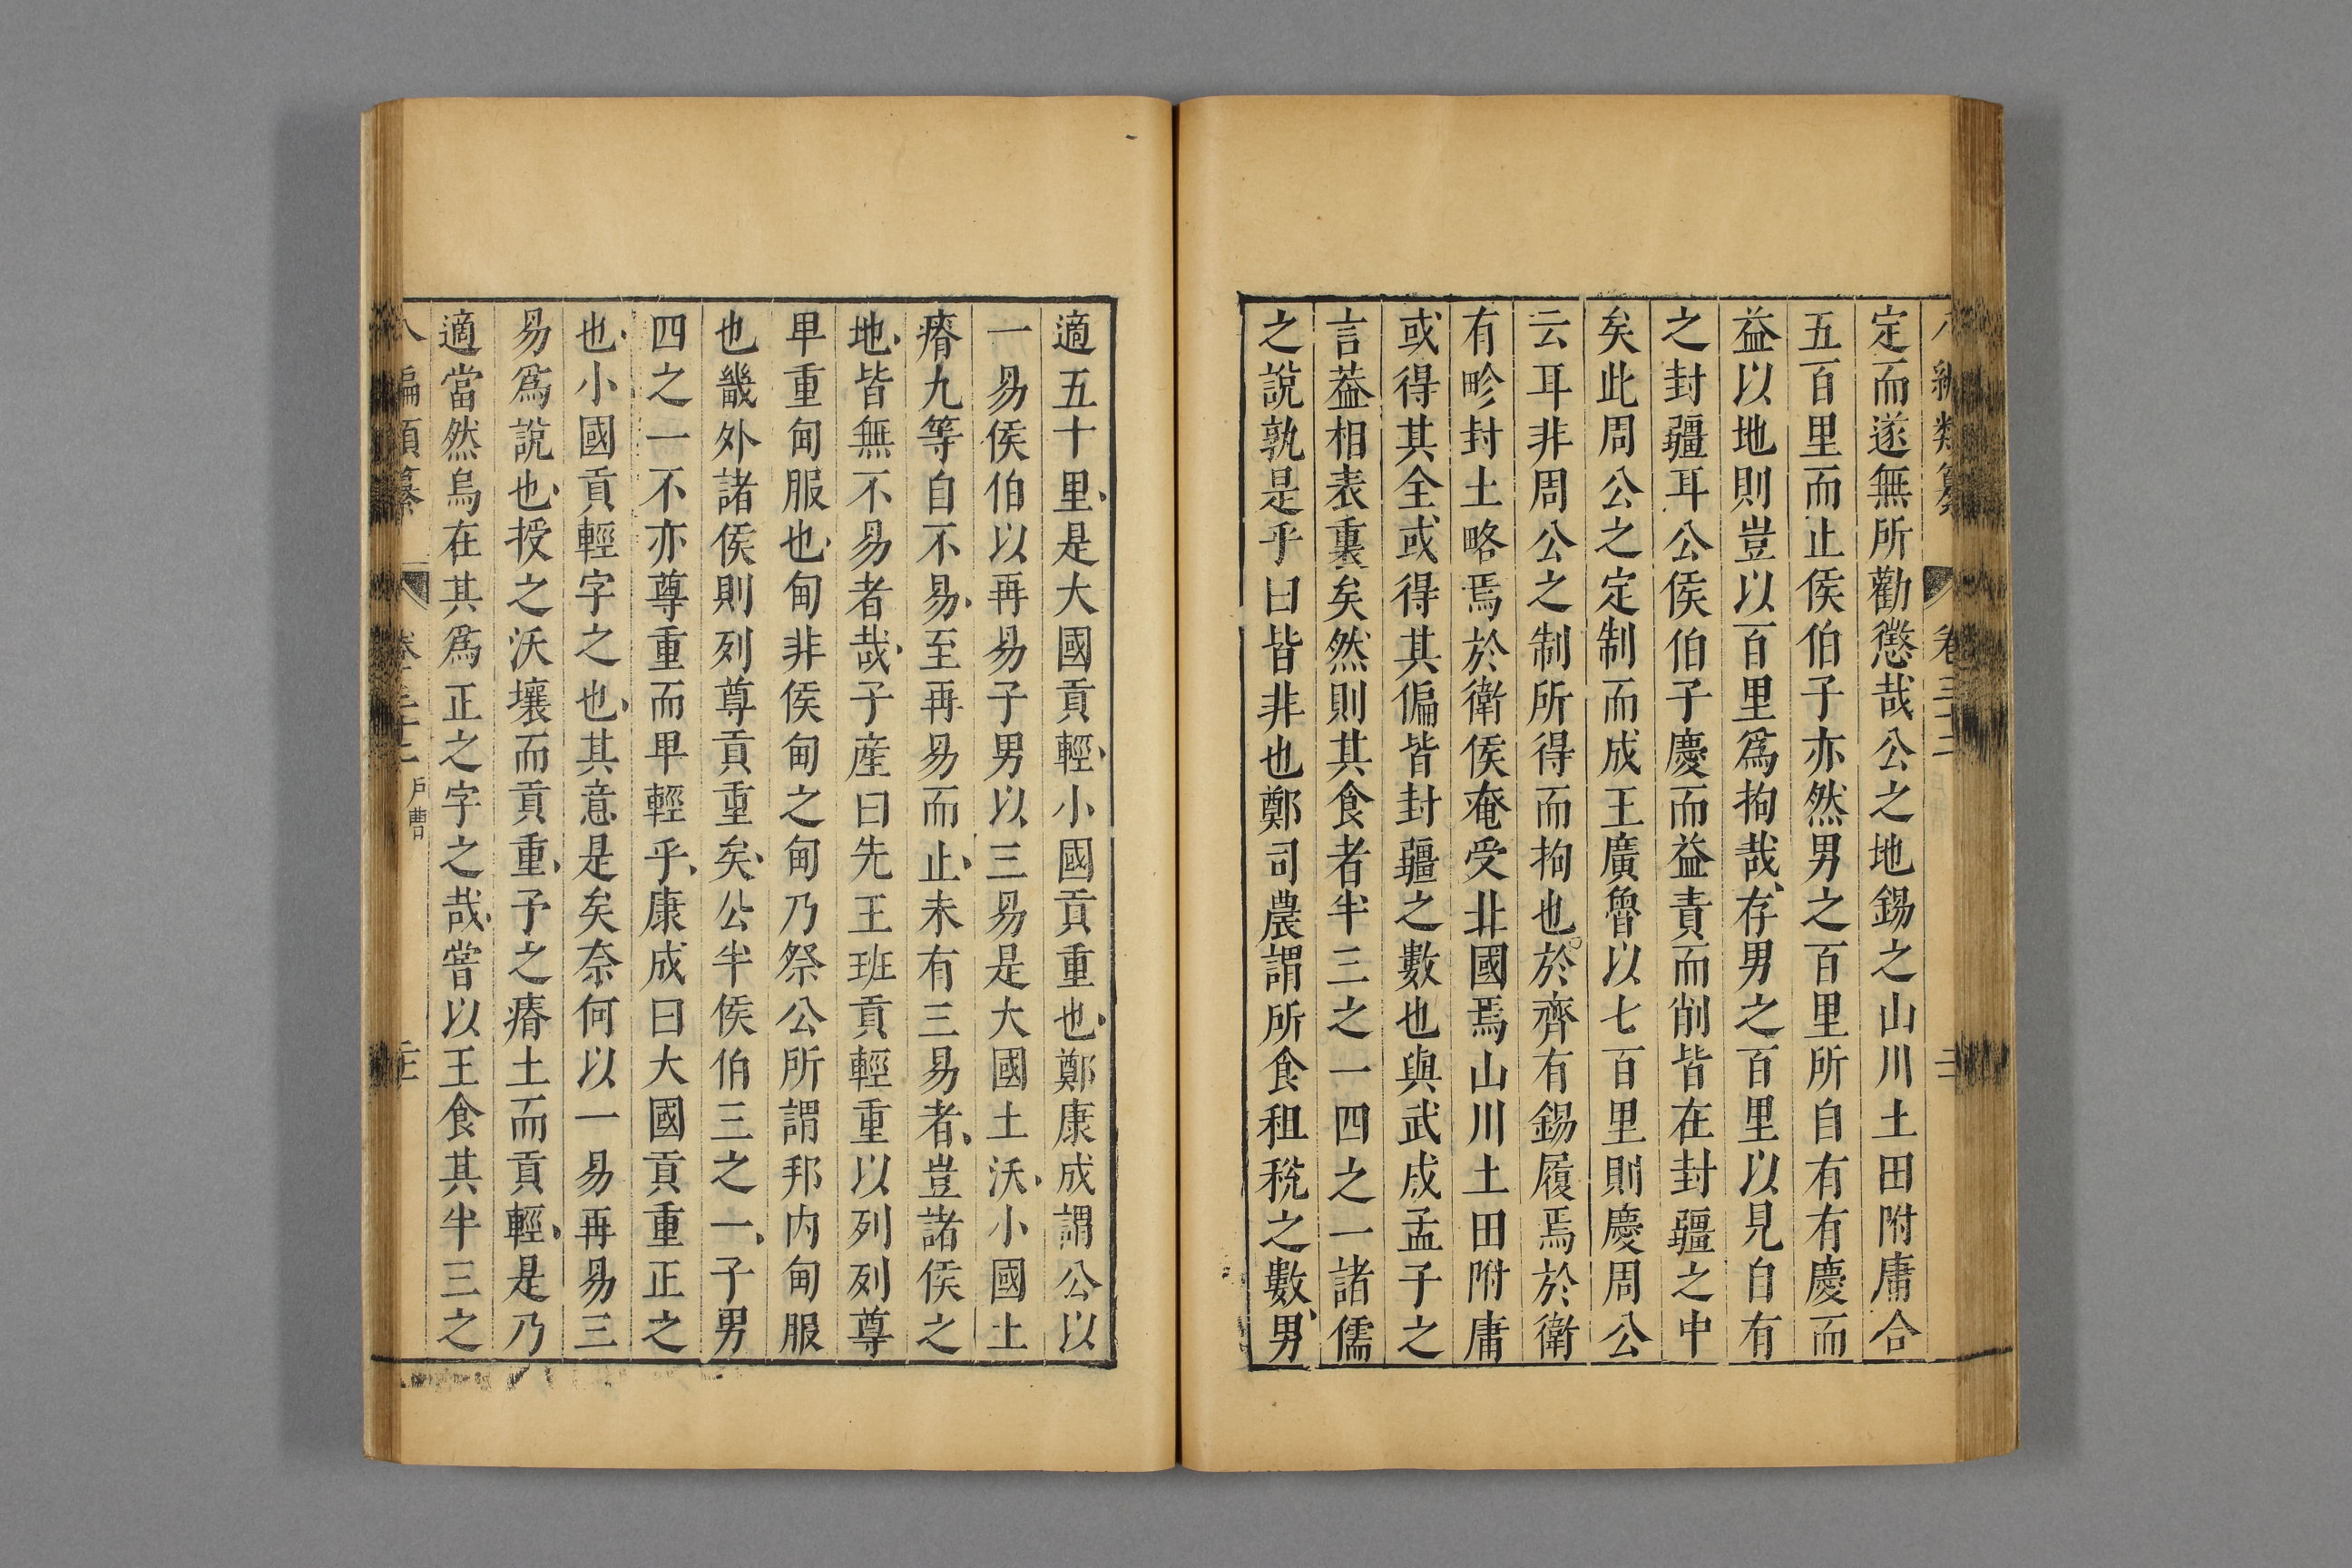 定而遂無所勸懲哉公之地錫之山川土田附庸合
五百里而止侯伯子亦然男之百里所自有有慶而
益以地則豈以百里爲拘哉存男之百里以見自有
之封疆耳公侯伯子慶而益責而削皆在封疆之中
矣此周公之定制而成王廣魯以七百里則慶周公
云耳非周公之制所得而拘也於齊有錫履焉於衛
有畛封土略焉於衛侯奄受北國焉山川土田附庸
或得其全或得其偏皆封疆之數也與武成孟子之
言葢相表裏矣然則其食者半三之一四之一諸儒
之說孰是乎曰皆非也鄭司農謂所食租稅之數男
適五十里是大國貢輕小國貢重也鄭康成謂公以
一易侯伯以再易子男以三易是大國土沃小國土
瘠九等自不易至再易而止未有三易者豈諸侯之
地皆無不易者哉子產曰先王班貢輕重以列列尊
卑重甸服也甸非侯甸之甸乃祭公所謂邦内甸服
也畿外諸侯則列尊貢重矣公半侯伯三之一子男
四之一不亦尊重而卑輕乎康成曰大國貢重正之
也小國貢輕字之也其意是矣奈何以一易再易三
易爲說也授之沃壤而貢重予之瘠土而貢輕是乃
適當然烏在其爲正之字之哉嘗以王食其半三之
戶曹